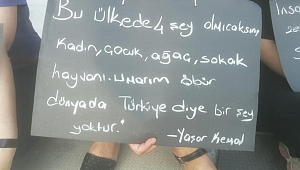 Bu ülkede 4 şey olmıcaksın
Kadın, çocuk, ağaç, sokak
hayvanı. Umarım öbür
dünyada Türkiye diye bir şey
yoktur."
-Yaşar Kemal
İnsa